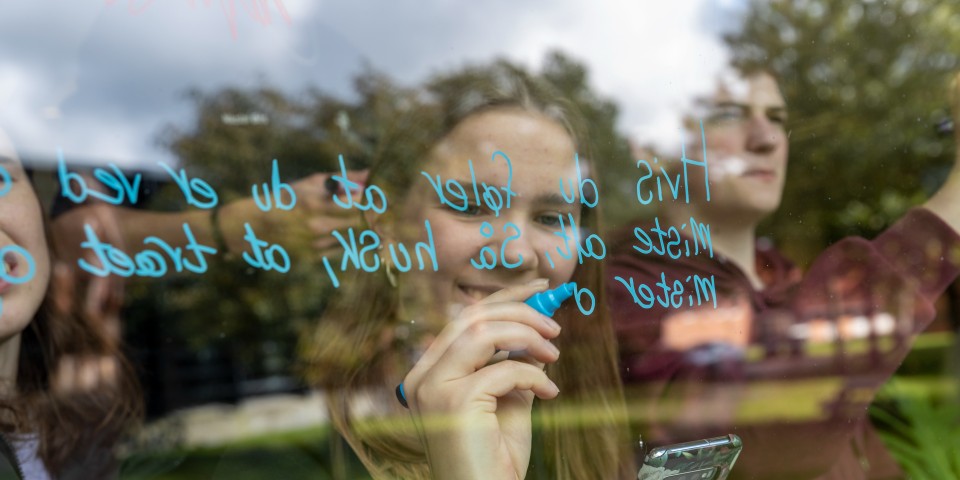 Hvis du føler at du er ved
miste alt, så husk, at træet
mister